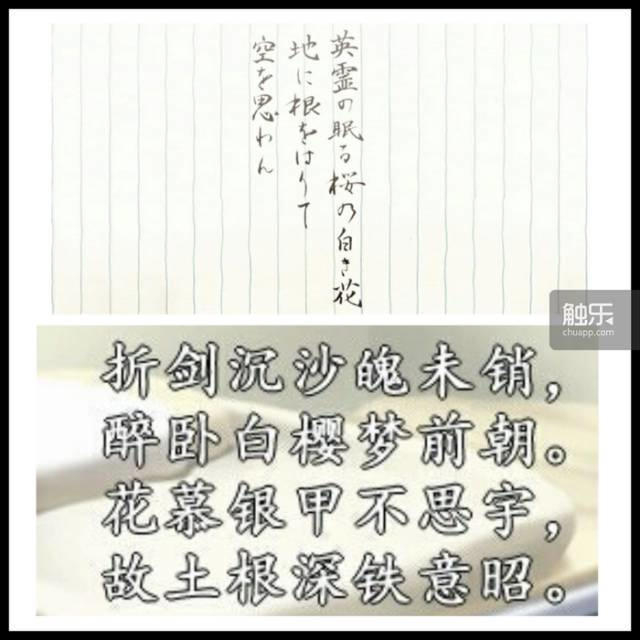 英霊の眠る桜の白き花
地に根をはりて
空を思わん
触乐
chuapp.com
折剑沉沙魄未销，
醉卧白樱梦前朝。
花慕银甲不思宇，
故土根深铁意昭。